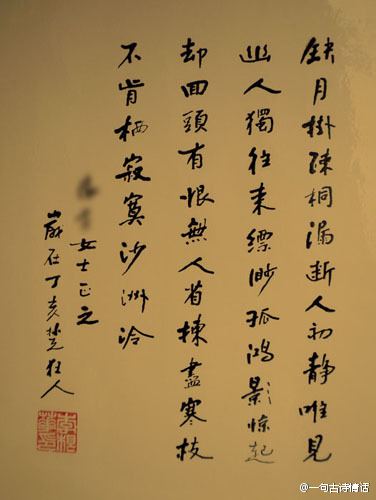 缺月掛疎桐漏断人初静唯見
幽人獨往來縹渺孤鴻影惊起
却回頭有恨無人省揀盡寒枝
不肯栖寂寞沙洲冷
女士正之
歲在丁亥楚狂人
@一句古诗情话